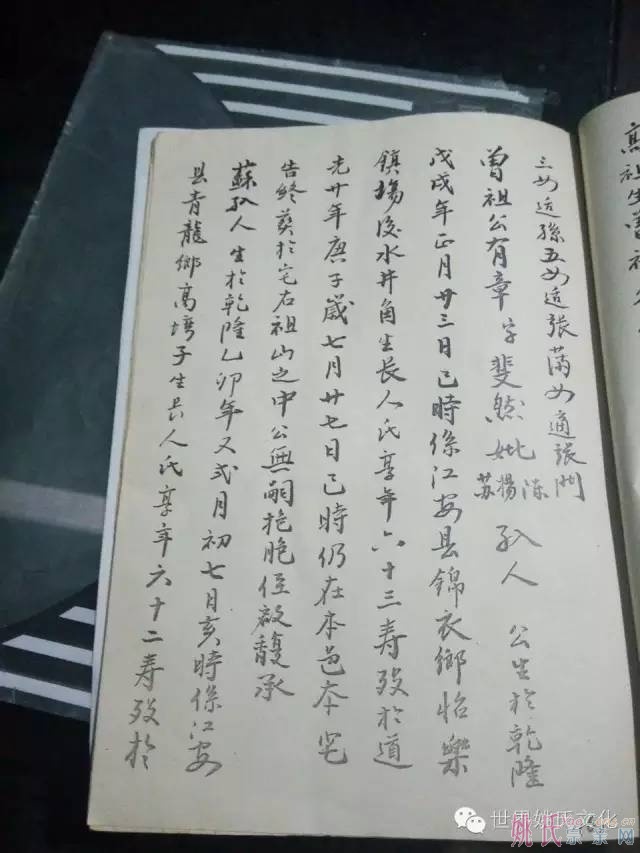 三女适孫五女适張滿女適張門
曾祖公有章字斐然妣陈楊苏孺人 公生於乾隆
戊戌年正月廿三日巳時係江安县錦衣鄉怡樂
鎮場後水井角生長人氏享年六十三寿殁於道
光廿年庚子歲七月廿七日巳時仍在本邑本宅
告終葵於宅右祖山之中公無嗣抱胞侄啟馥承
蘇孺人生於乾隆乙卯年又弍月初七日亥時係江安
县青龍鄉高塆子生長人氏享年六十二寿殁於
高祖生曾祖
世界姚氏文化
姚氏宗亲网